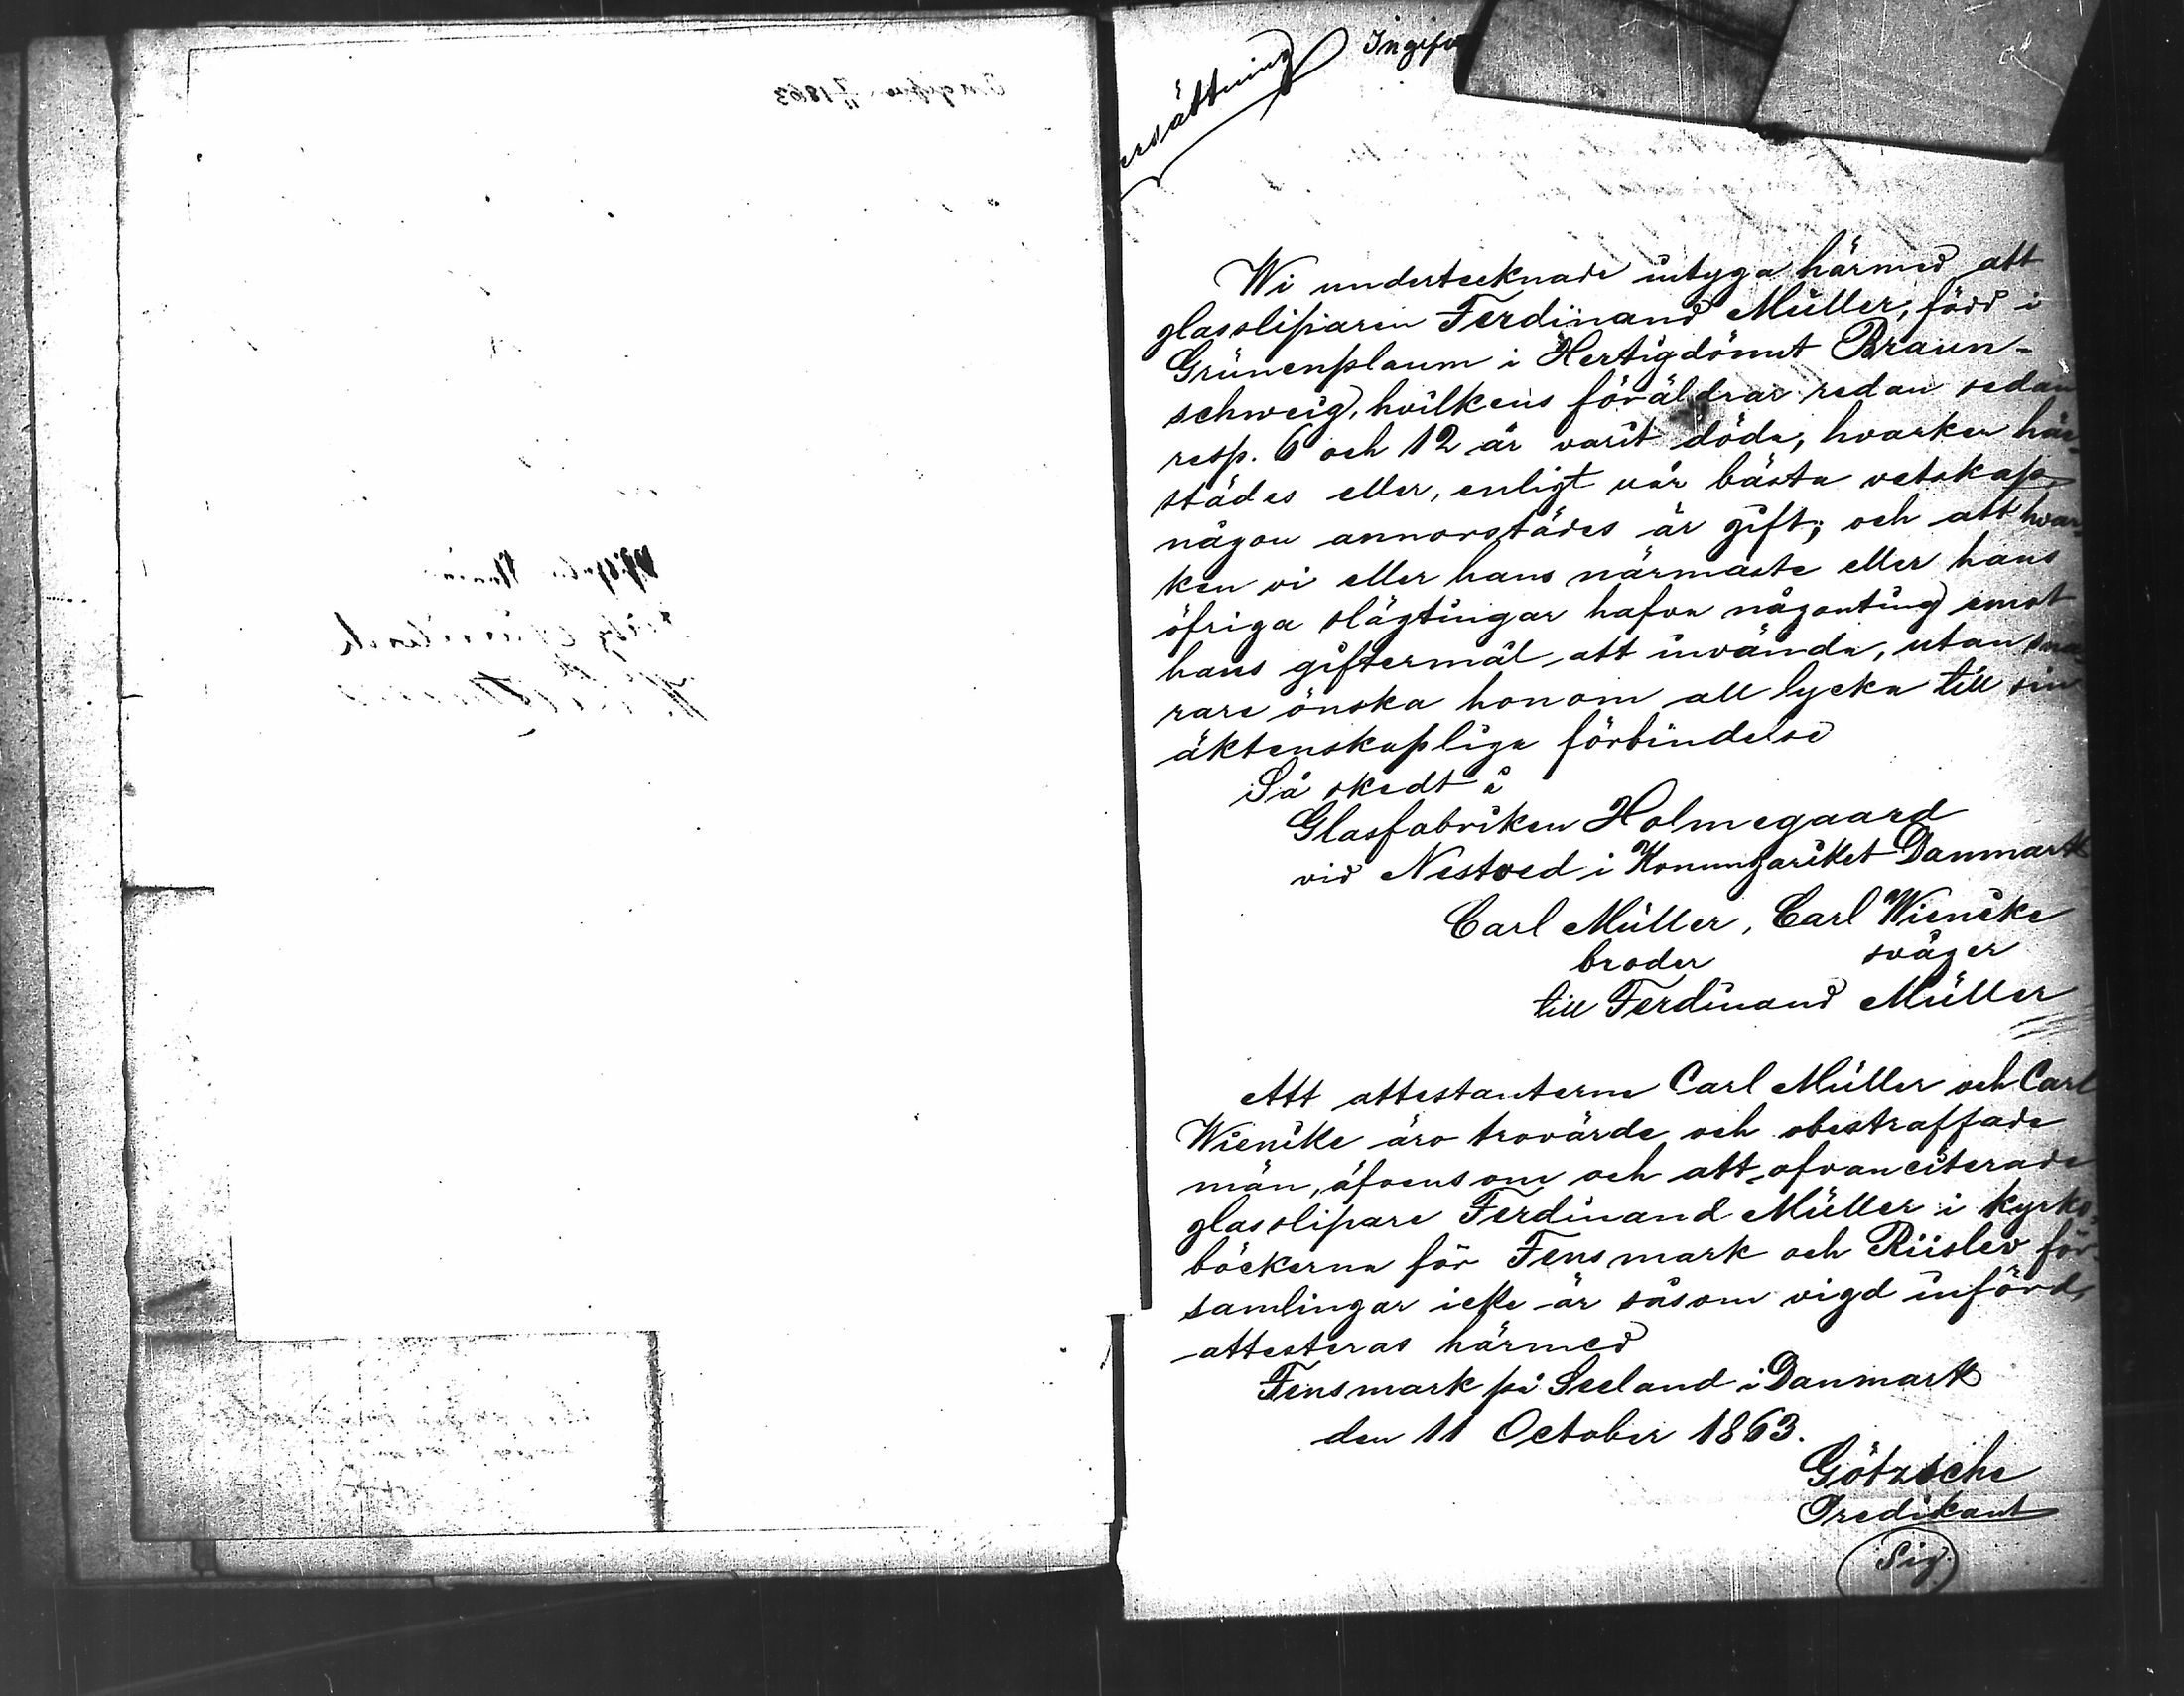 ersättning
Ingifv
Wi undertecknade intyga härmed att
glassliparen Ferdinand Müller, född i
Grünenplaum i Hertigdömet Braun-
schweig, hvilkens föräldrar redan sedan
resp. 6 och 12 år varit döda, hvarken här-
städes eller, enligt vår bästa vetskap,
någon annorstädes är gift; och att hvar-
ken vi eller hans närmaste eller hans
öfriga slägtingar hafva någonting emot
hans giftermål att invända, utan sna-
rare önska honom all lycka till sin
äktenskapliga förbindelse
Så skedt å
Glasfabriken Holmegaard
vid Nestved i Konungariket Danmark
Carl Müller, Carl Wienike
broder svåger
till Ferdinand Müller
Att attestanterne Carl Müller och Carl
Wienike äro trovärde och obestraffade
män, äfvensom och att ofvanciterade
glasslipare Ferdinand Müller i kyrko-
böckerna för Fensmark och Riislev för-
samlingar icke är såsom vigd införd,
attesteras härmed
Fensmark på Seeland i Danmark
den 11 October 1863.
Götzsche
Predikant
Sig.